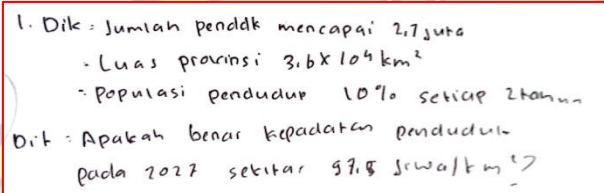 1. Dik : Jumlah penddk mencapai 2,7 juta
- Luas provinsi 3.6 x 10⁴ km²
- Populasi penduduk 10% setiap 2 tahun
Dit : Apakah benar kepadatan penduduk
pada 2027 sekitar 97.5 jiwa/km²?